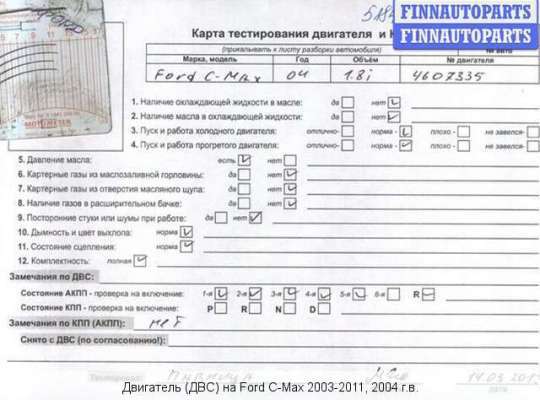 FINNAUTOPARTS
FINNAUTOPARTS
Карта тестирования двигателя и К
(прикалывать к листу разборки автомобиля)
Марка, модель Год Объём № двигателя
Ford C-Max 04 1.8i 4607335
1. Наличие охлаждающей жидкости в масле: да нет
2. Наличие масла в охлаждающей жидкости: да нет
3. Пуск и работа холодного двигателя: отлично- норма - плохо - не завелся-
4. Пуск и работа прогретого двигателя: отлично- норма - плохо - не завелся-
5. Давление масла: есть нет
6. Картерные газы из маслозаливной горловины: да нет
7. Картерные газы из отверстия масляного щупа: да нет
8. Наличие газов в расширительном бачке: да нет
9. Посторонние стуки или шумы при работе: да нет
10. Дымность и цвет выхлопа: норма
11. Состояние сцепления: норма
12. Комплектность: полная
Замечания по ДВС:
Состояние АКПП - проверка на включение: 1-я 2-я 3-я 4-я 5-я 6-я R
Состояние КПП - проверка на включение: P R N D
Замечания по КПП (АКПП): нет
Снято с ДВС (по согласованию!):
Двигатель (ДВС) на Ford C-Max 2003-2011, 2004 г.в.